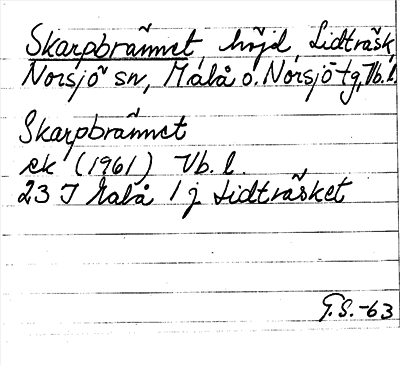 Skarpbrännet, höjd, Lidträsk,
Norsjö sn, Malå o. Norsjö tg, Vb. l.
Skarpbrännet
ek (1961) Vb. l.
23 J Malå 1 j Lidträsket
T.S.-63